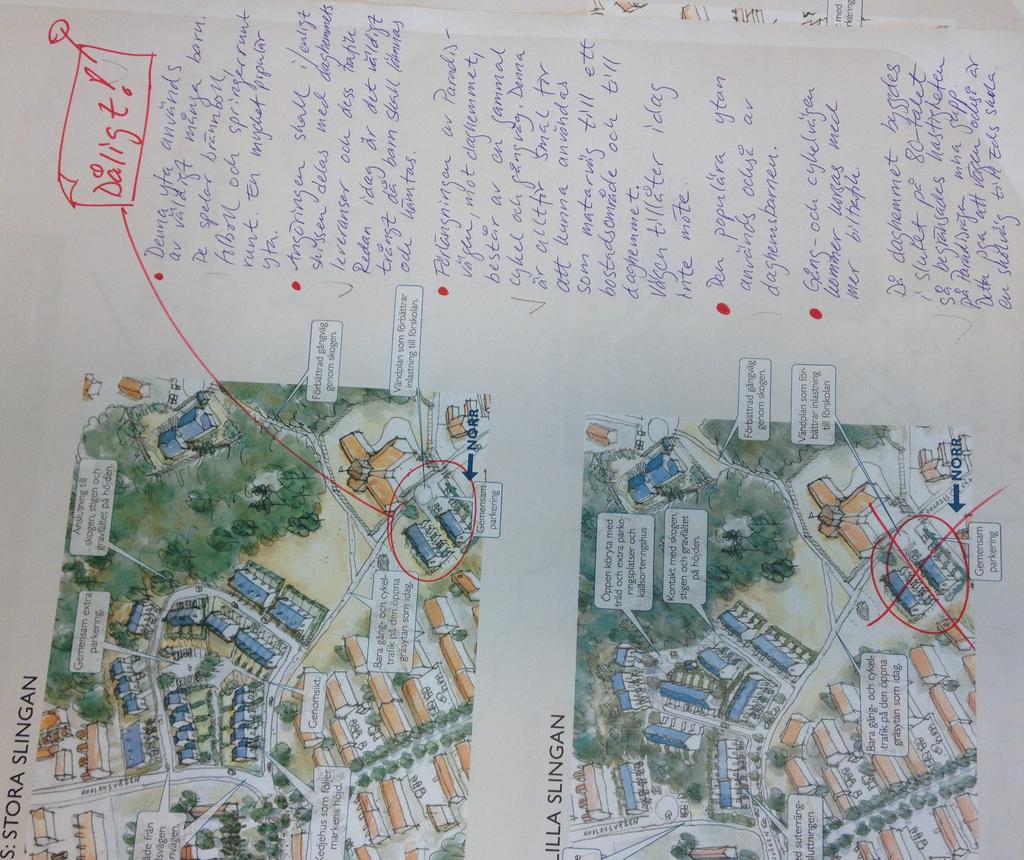 Dåligt!
Denna yta används
av väldigt många barn.
De spelar brännboll,
fotboll och springer runt
runt. En mycket populär
yta.
Insvängningen skall enligt
skissen delas med daghemmets
leveranser och dess trafik
Redan idag är det väldigt
trångt då barn skall lämnas
och hämtas.
Förlängningen av Paradis-
vägen, mot daghemmet,
består av en gammal
cykel och gångväg. Denna
är alltför smal för
att kunna användas
som matarväg till ett
bostadsområde och till
daghemmet.
Vägen tillåter idag
inte möte.
Den populära ytan
används också av
daghemsbarnen.
Gång- och cykelvägen
kommer korsas med
mer biltrafik.
Då daghemmet byggdes
i slutet på 80-talet
så begränsades hastigheten
på Paradisvägen
Detta pga att vägen också är
en skolväg till Eds skola.
S: STORA SLINGAN
Anslutning till
skogen, stigen och
gravfältet på höjden.
Gemensam extra
parkering.
Förbättrad gångväg
genom skogen.
Vändplan som förbättrar
inlastning till förskolan.
NORR
Gemensam
parkering
Bara gång- och cykel-
trafik på den öppna
gräsytan som idag.
Genomsikt.
Kedjehus som följer
markens höjd.
LILLA SLINGAN
Öppen köryta med
träd och extra parke-
ringsplatser och
källsorteringshus
Kontakt med skogen,
stigen och gravfältet
på höjden.
Förbättrad gångväg
genom skogen.
Vändplan som för-
bättrar inlastning
till förskolan.
NORR
Gemensam
parkering
Bara gång- och cykel-
trafik på den öppna
gräsytan som idag.